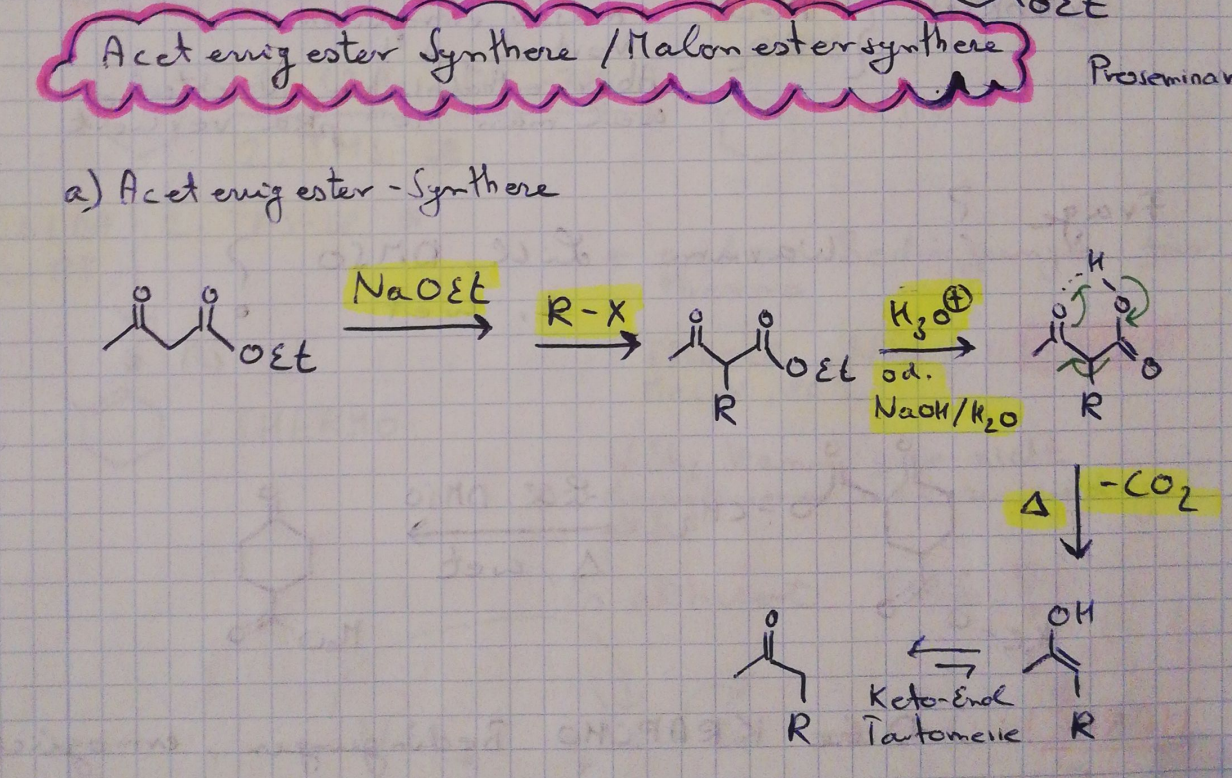 OEt
Acetessigester Synthese / Malonestersynthese
Proseminar
a) Acetessigester-Synthese
O O OEt
NaOEt
R-X
O O OEt R
H₃O⊕
od.
NaOH/H₂O
H
O O O
R
Δ -CO₂
OH
R
Keto-Enol
Tautomerie
O
R